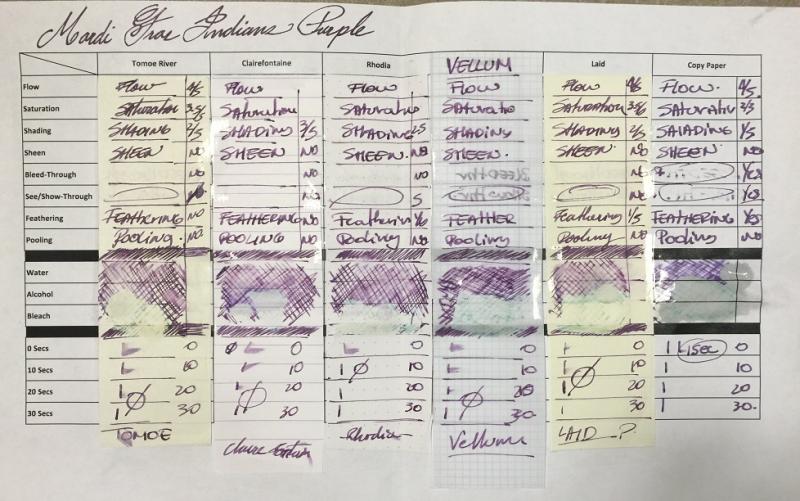 Mardi Gras Indians Purple
Tomoe River Clairefontaine Rhodia VELLUM Laid Copy Paper
Flow Flow 4/5 Flow Flow Flow Flow 4/5 Flow. 4/5
Saturation Saturation 3.5/5 Saturation Saturatio Saturatio Saturation 3.5/5 Saturativ 2/5
Shading SHADING 2/5 SHADING 3/5 SHADING 2.5 SHADING SHADING 2/5 SHADING 1/5
Sheen SHEEN NO SHEEN NO SHEEN. NO SHEEN. SHEEN NO SHEEN NO
Bleed-Through NO NO NO NO YES
See/Show-Through NO NO S NO YES
Feathering FEATHERING NO FEATHERING NO Featherin FEATHER Feathering 1/5 FEATHERING
Pooling Pooling. NO POOLING NO Pooling NO Pooling Pooling NO Pooling NO
Water
Alcohol
Bleach
0 Secs 0 0 0 0 0 1sec 0
10 Secs 10 10 10 10 10 10
20 Secs 20 20 20 20 20 20
30 Secs 30 30 30 30. 30 30.
TOMOE Claire Rhodia Vellum LAID ?